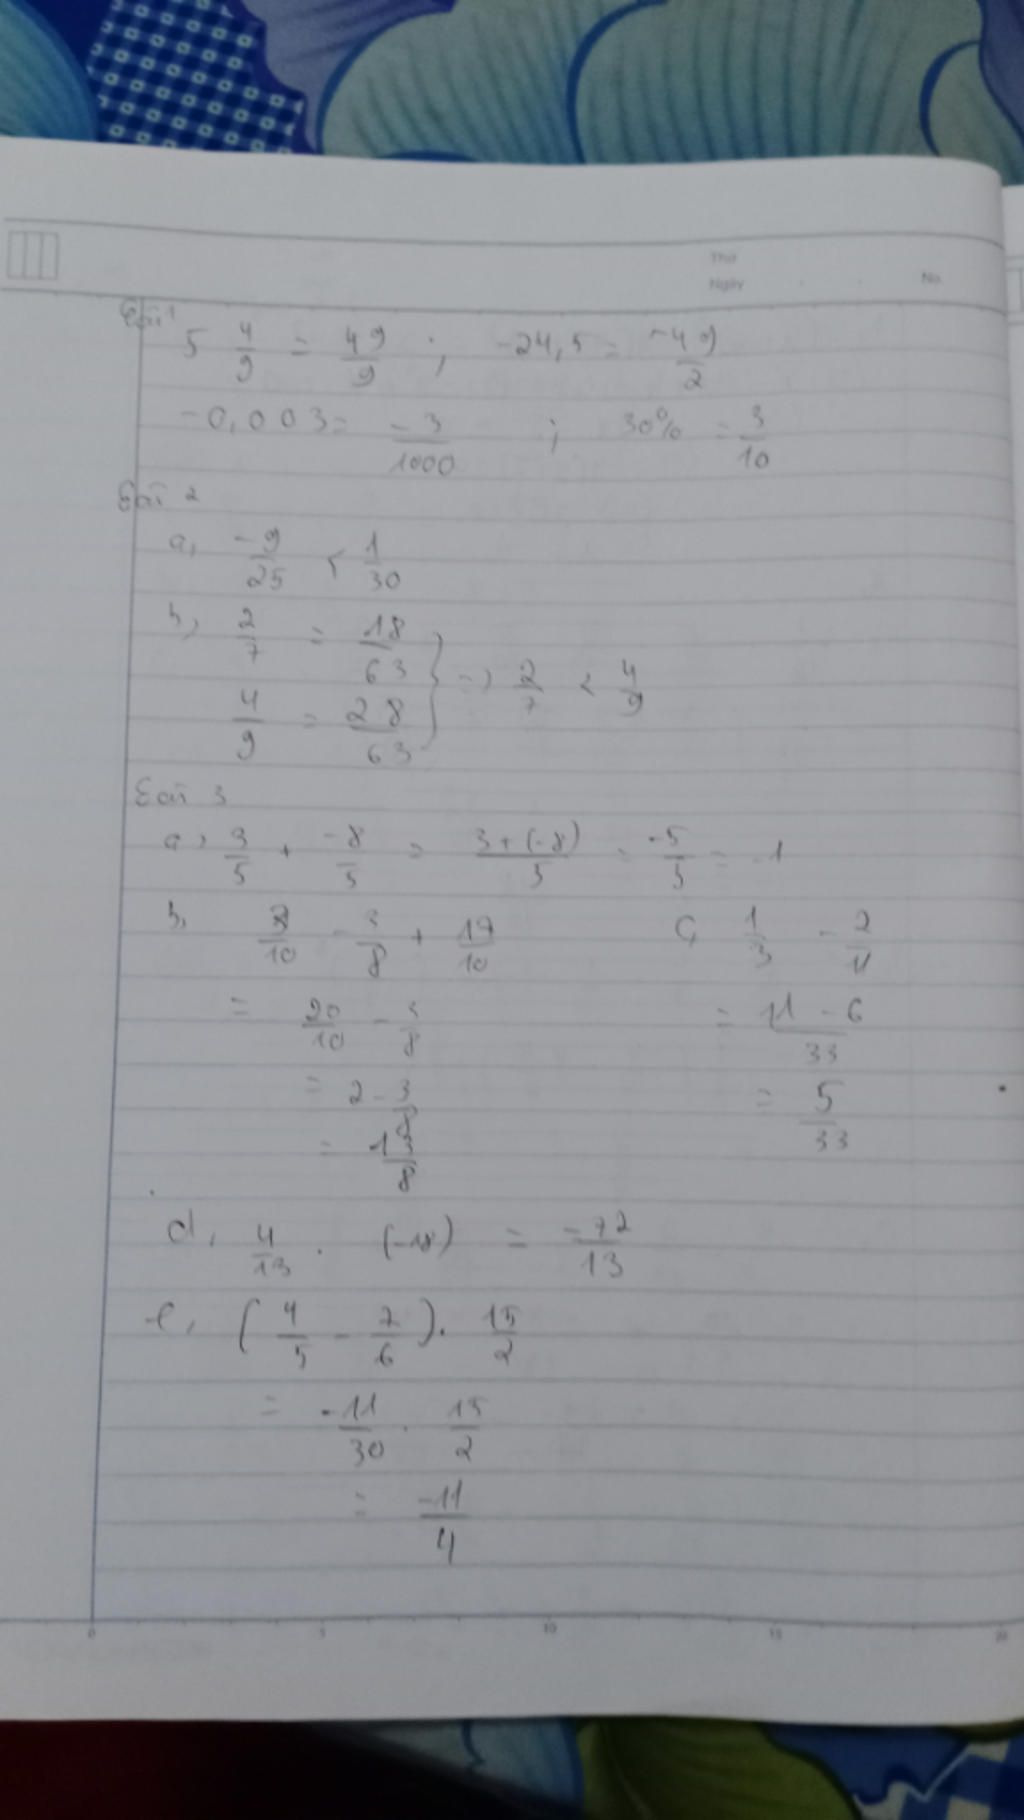 Thứ
Ngày . . No.
Bài 1
5 4/9 = 49/9 ; -24,5 = -49/2
-0,003 = -3/1000 ; 30% = 3/10
Bài 2
a, -9/25 < 1/30
b, 2/7 = 18/63
4/9 = 28/63 } => 2/7 < 4/9
Bài 3
a, 3/5 + -8/5 = 3+(-8)/5 = -5/5 = -1
b, 3/10 - 3/8 + 17/10
= 20/10 - 3/8
= 2 - 3/8
= 13/8
c, 1/3 - 2/11
= 11 - 6/33
= 5/33
d, 4/13 . (-18) = -72/13
e, (4/5 - 7/6) . 15/2
= -11/30 . 15/2
= -11/4
0 5 10 15 20